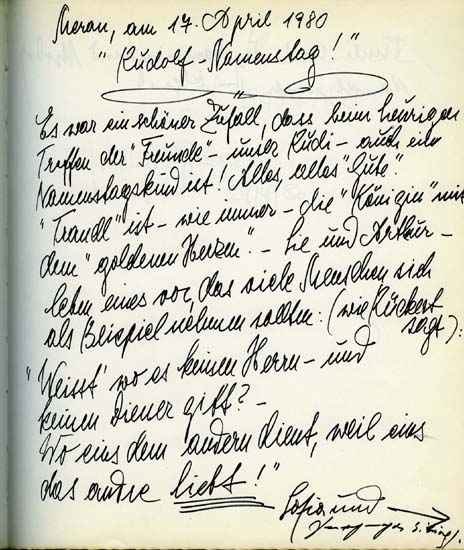 Meran, am 17. April 1980
"Rudolf-Namenstag!"
Es war ein schöner Zufall, dass beim heurigen
Treffen der "Freunde" - unser Rudi - auch ein
Namenstagskind ist! Alles, alles "Gute".
"Trandl" ist - wie immer - die "Königin" mit
dem "goldenen Herzen". - Sie und Arthur -
leben eines vor, das viele Menschen sich
als Beispiel nehmen sollten: (wie Rückert
sagt):
"Weisst' wo es keinen Herrn - und
keinen Diener gibt? -
Wo eins dem andern dient, weil eins
das andre liebt!"
Sofia und